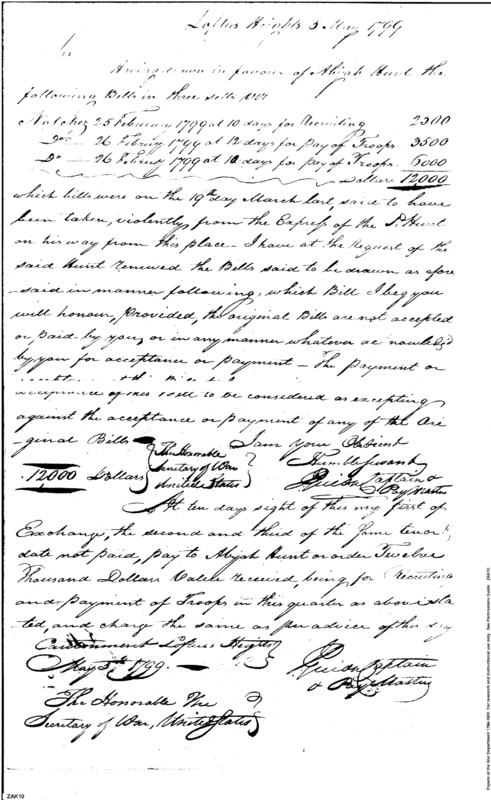 Loftus Heights 5 May 1799
Sir
Having drawn in favour of Abijah Hunt the
following Bills in three setts viz
Natchez 25 February 1799 at 10 days for Recruiting 2500
Do — 26 Febuy 1799 at 12 days for pay of Troops 3500
Do — 26 Febuy 1799 at 10 days for pay of Troops 6000
Dollars 12,000
which bills were on the 19th day March last, said to have
been taken, violently, from the Express of the Sd. Hunt
on his way from this place — I have at the Request of the
said Hunt renewed the Bills said to be drawn as afore
-said in manner following, which Bill I beg you
will honour, provided, the original Bills are not accepted
or paid by you, or in any manner whatever
by you for acceptance or payment — The payment or
acceptance of this Bill to be considered as excepting
against the acceptance or payment of any of the Ori
-ginal Bills
I am your Obedient
Humble Servant
12000 Dollars
The Honorable
Secretary of War
United States
Guion Captain
& Pay Master
At ten days sight of this my first of
Exchange, the second and third of the same tenor &
date not paid, pay to Abijah Hunt or order Twelve
Thousand Dollars Value received, being for Recruiting
and payment of Troops in this quarter as above sta
ted, and charge the same as per advice of this day
Cantonment Loftus Heights
May 5th 1799. —
Guion Captain
& Pay Master
The Honorable The
Secretary of War, United States
ZAK10
Papers of the War Department 1784-1800, For research and instructional use only. See Permissions Guide. ZAK10